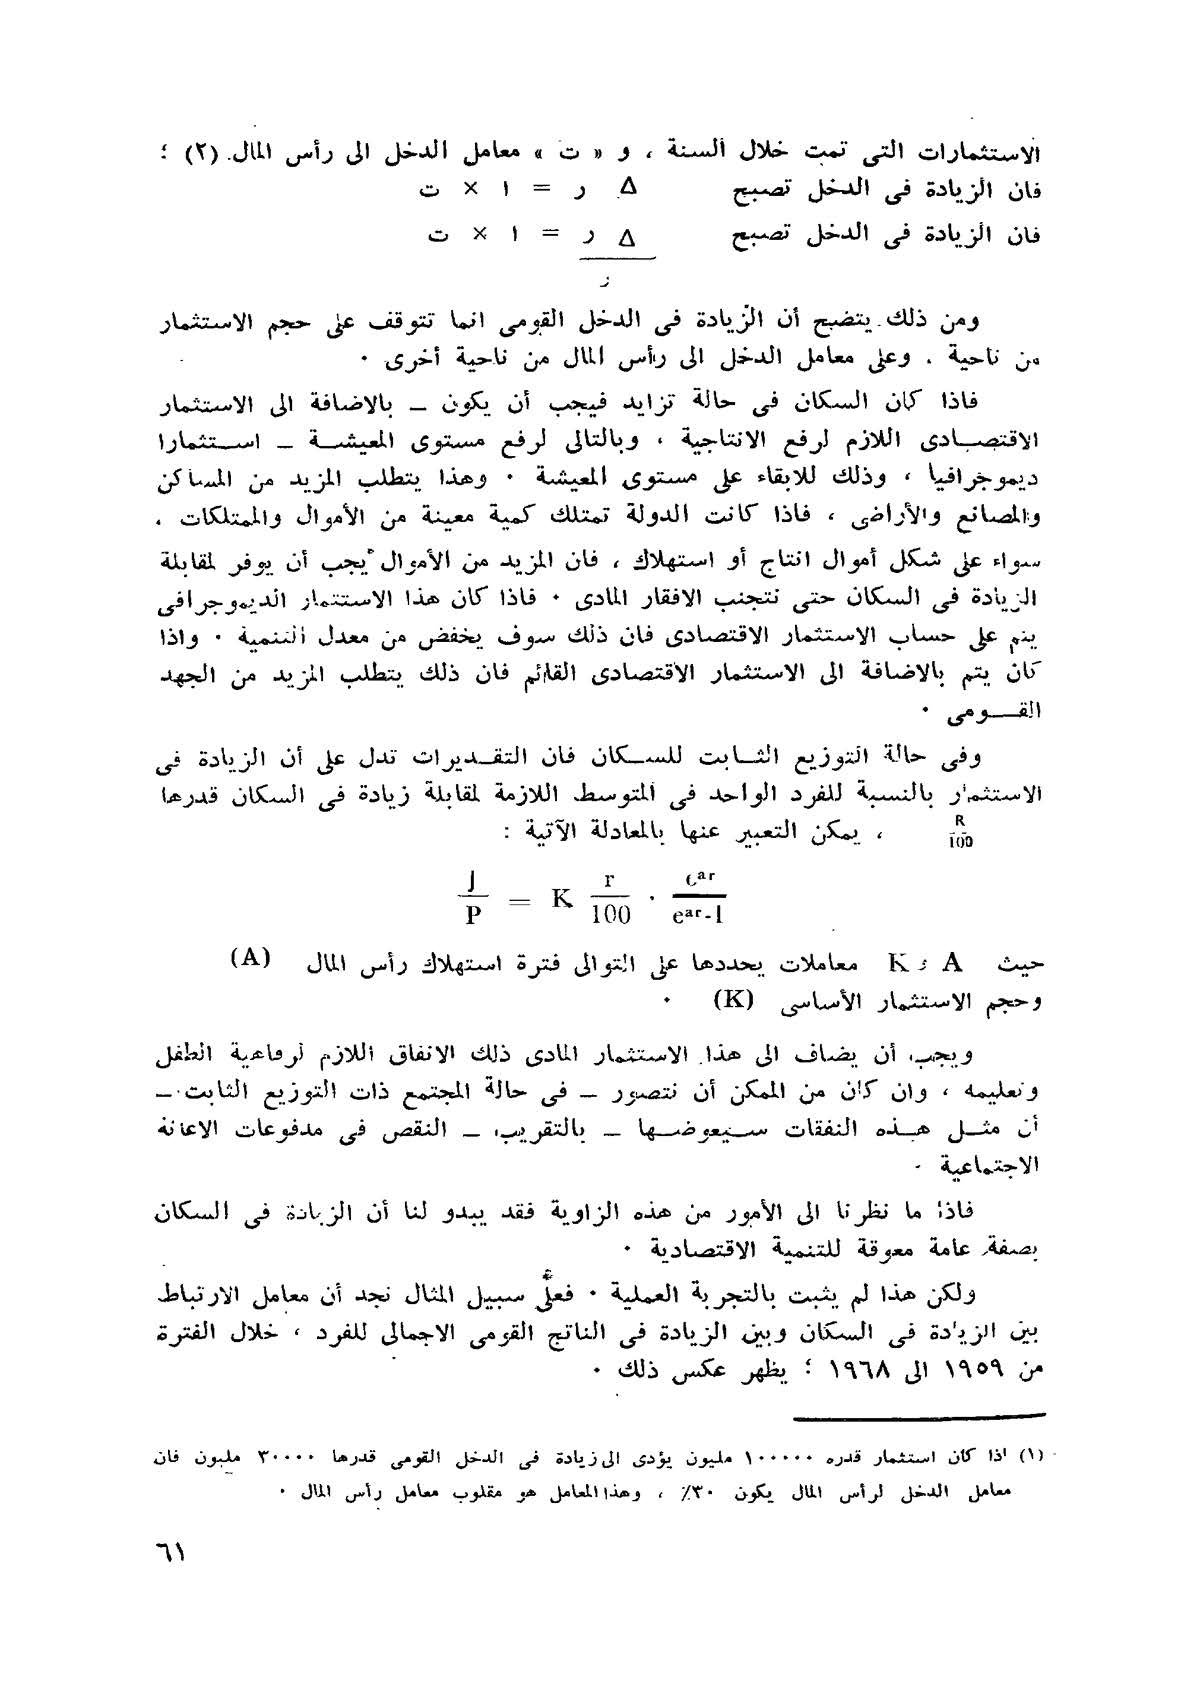 الاستثمارات التى تمت خلال السنة ، و « ت » معامل الدخل الى رأس المال (٢) ؛
فان الزيادة فى الدخل تصبح Δ ر = ا × ت
فان الزيادة فى الدخل تصبح Δ ر = ا × ت
ر
ومن ذلك يتضح أن الزيادة فى الدخل القومى انما تتوقف على حجم الاستثمار
من ناحية . وعلى معامل الدخل الى رأس المال من ناحية أخرى ٠
فاذا كان السكان فى حالة تزايد فيجب أن يكون ــ بالاضافة الى الاستثمار
الاقتصــادى اللازم لرفع الانتاجية ، وبالتالى لرفع مستوى المعيشــة ــ اســتثمارا
ديموجرافيا ، وذلك للابقاء على مستوى المعيشة ٠ وهذا يتطلب المزيد من المساكن
والمصانع والأراضى ، فاذا كانت الدولة تمتلك كمية معينة من الأموال والممتلكات ،
سواء على شكل أموال انتاج أو استهلاك ، فان المزيد من الأموال يجب أن يوفر لمقابلة
الزيادة فى السكان حتى نتجنب الافقار المادى ٠ فاذا كان هذا الاستثمار الديموجرافى
يتم على حساب الاستثمار الاقتصادى فان ذلك سوف يخفض من معدل التنمية ٠ واذا
كان يتم بالاضافة الى الاستثمار الاقتصادى القائم فان ذلك يتطلب المزيد من الجهد
القــومى ٠
وفى حالة التوزيع الثــابت للســكان فان التقــديرات تدل على أن الزيادة فى
الاستثمار بالنسبة للفرد الواحد فى المتوسط اللازمة لمقابلة زيادة فى السكان قدرها
R/100 ، يمكن التعبير عنها بالمعادلة الآتية :
J/P = K r/100 · e^ar/e^ar-1
حيث A ، K معاملات يحددها على التوالى فترة استهلاك رأس المال (A)
وحجم الاستثمار الأساسى (K) ٠
ويجب أن يضاف الى هذا الاستثمار المادى ذلك الانفاق اللازم لرفاهية الطفل
وتعليمه ، وان كان من الممكن أن نتصور ــ فى حالة المجتمع ذات التوزيع الثابت ــ
أن مثــل هــذه النفقات ســيعوضــها ــ بالتقريب ــ النقص فى مدفوعات الاعانة
الاجتماعية ٠
فاذا ما نظرنا الى الأمور من هذه الزاوية فقد يبدو لنا أن الزيادة فى السكان
بصفة عامة معوقة للتنمية الاقتصادية ٠
ولكن هذا لم يثبت بالتجربة العملية ٠ فعلى سبيل المثال نجد أن معامل الارتباط
بين الزيادة فى السكان وبين الزيادة فى الناتج القومى الاجمالى للفرد ، خلال الفترة
من ١٩٥٩ الى ١٩٦٨ ؛ يظهر عكس ذلك ٠
(١) اذا كان استثمار قدره ١٠٠٠٠٠ مليون يؤدى الى زيادة فى الدخل القومى قدرها ٣٠٠٠٠ مليون فان
معامل الدخل لرأس المال يكون ٣٠٪ ، وهذا المعامل هو مقلوب معامل رأس المال ٠
٦١